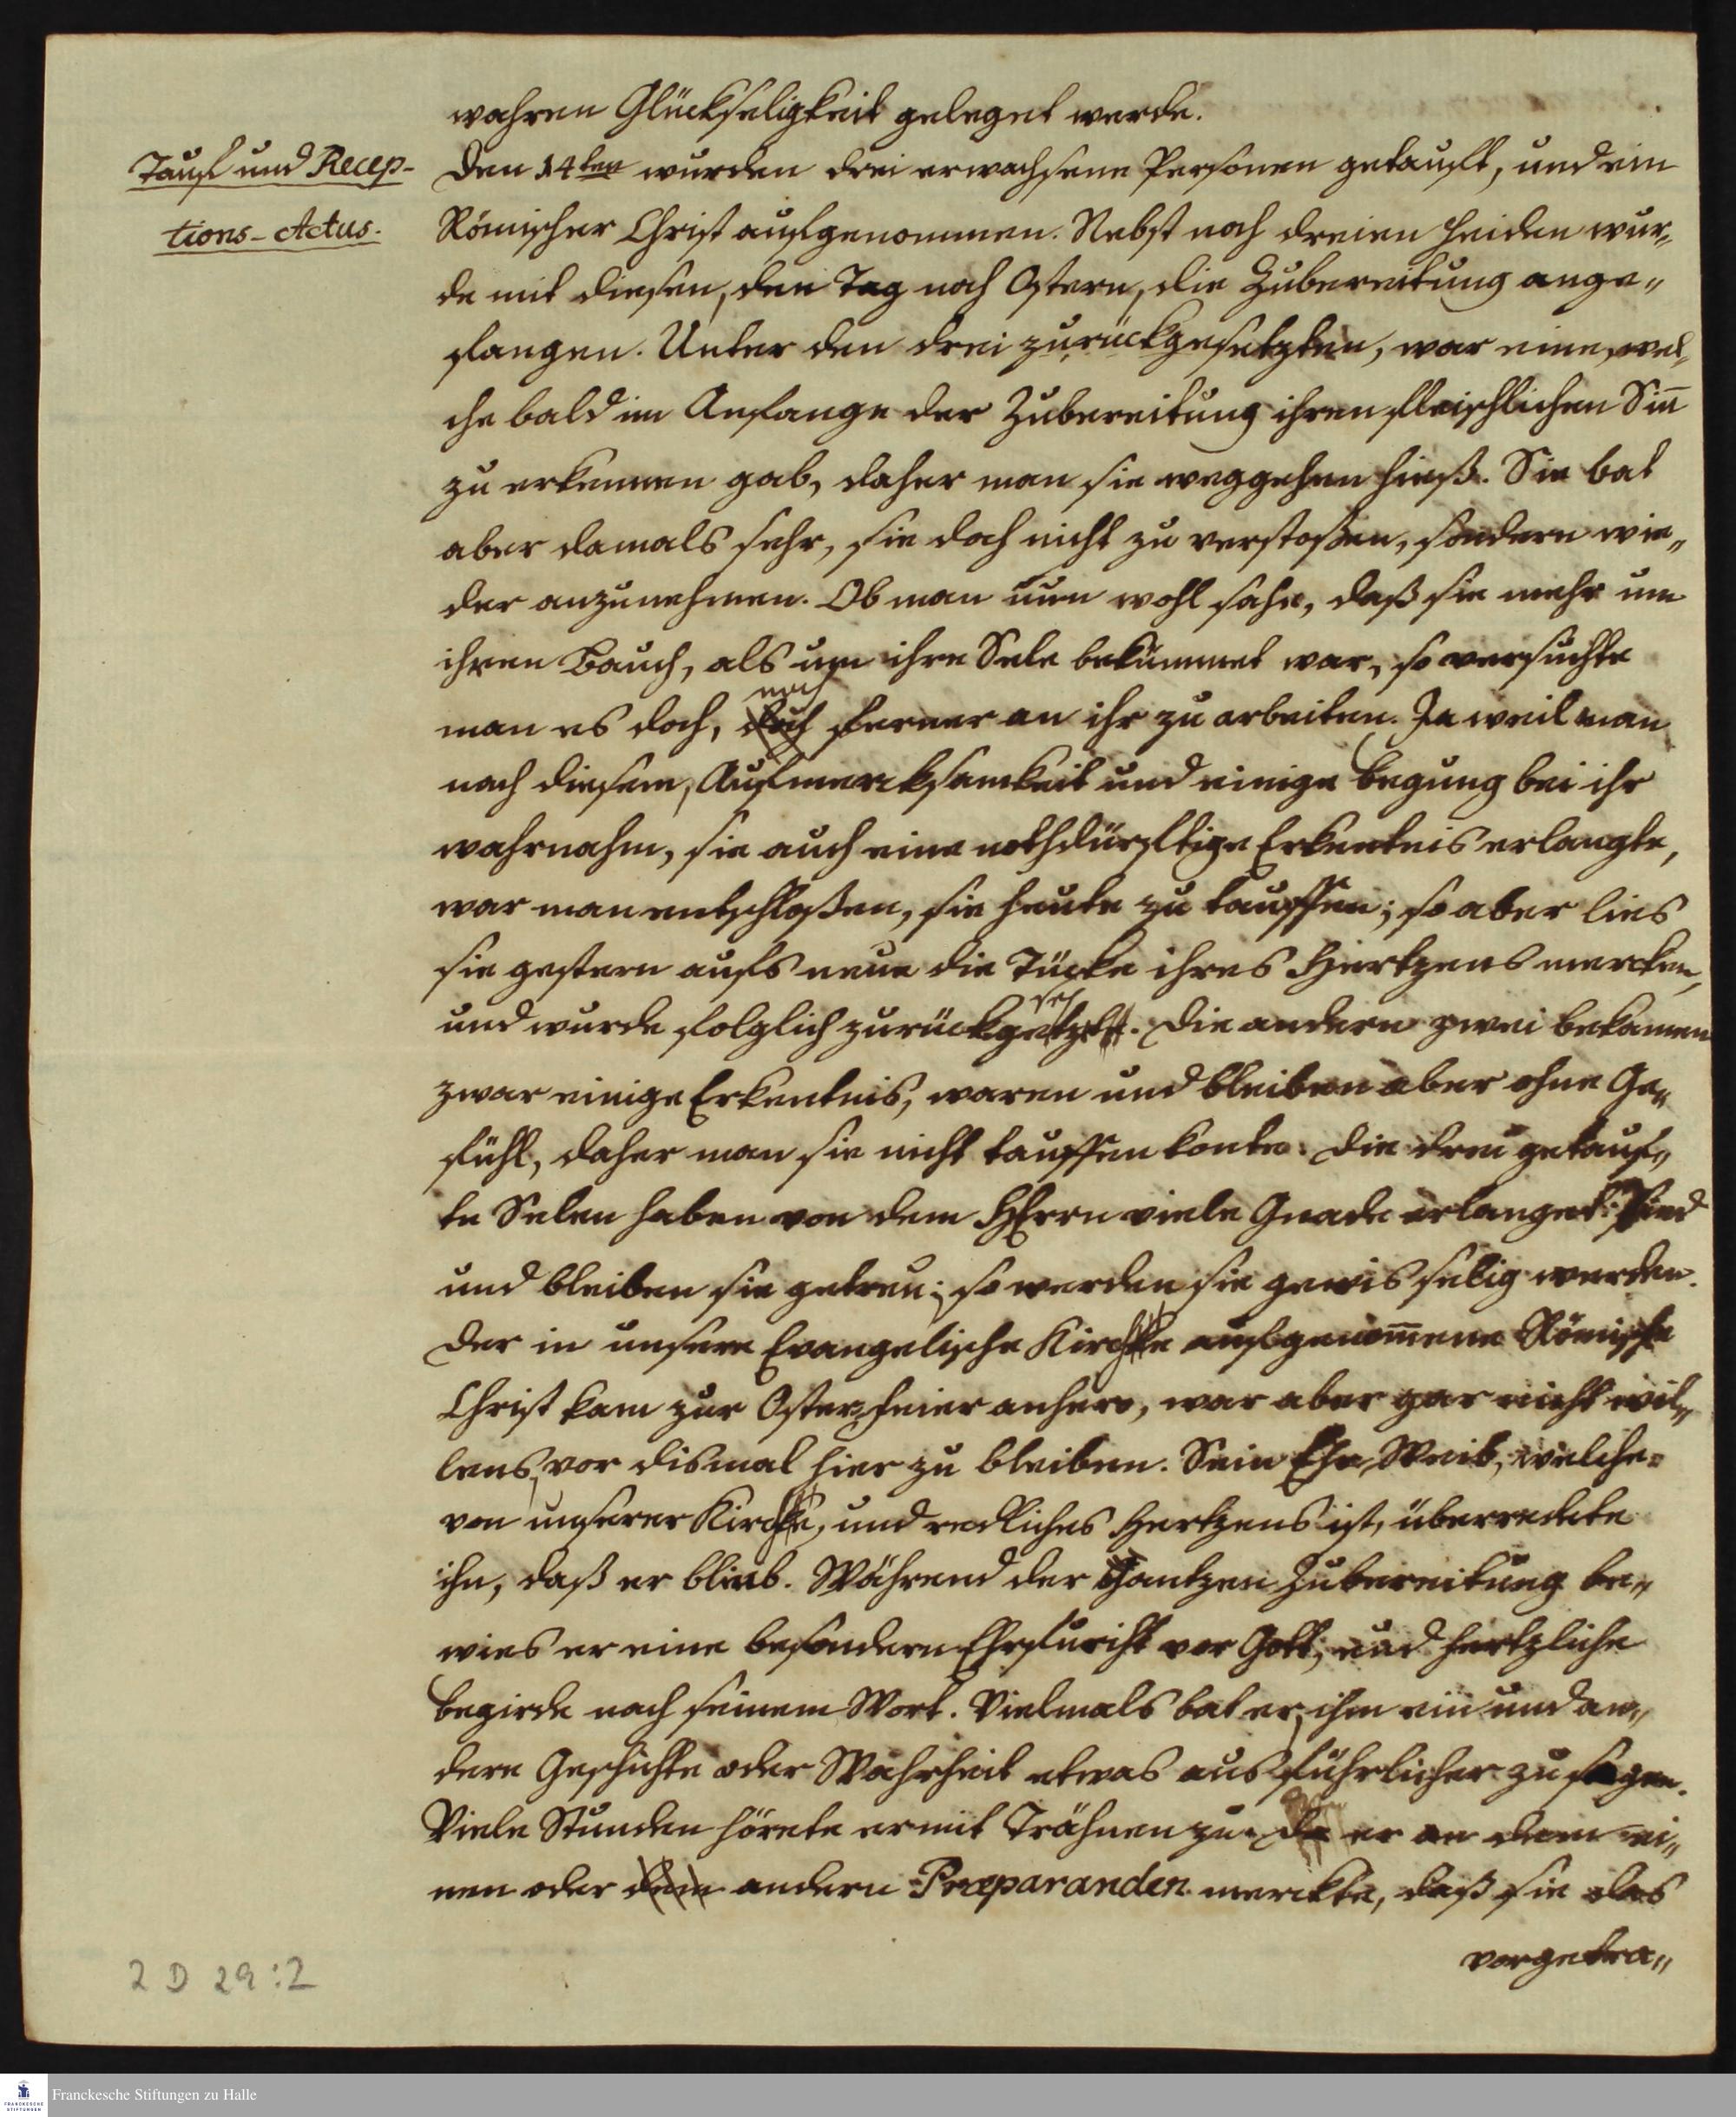 wahren Glückseligkeit geleget werde.
Tauf und Recep-
tions-Actus.
Den 14ten wurden drei erwachsene Personen getauft, und ein
Römischer Christ aufgenommen. Nebst noch dreien Heiden wur„
de mit diesen, den Tag nach Ostern, die Zubereitung ange„
fangen. Unter den drei zurückgesetzten, war eine, wel„
che bald im Anfange der Zubereitung ihren fleischlichen Sin̄
zu erkennen gab, daher man sie weggehen hieß. Sie bat
aber damals sehr, sie doch nicht zu verstoßen, sondern wie„
der anzunehmen. Ob man nun wohl sahe, daß sie mehr um
ihren Bauch, als um ihre Sele bekümmet war, so versuchte
man es doch, noch ferner an ihr zu arbeiten. Ja weil man
nach diesem, Aufmercksamkeit und einige Regung bei ihr
wahrnahm, sie auch eine nothdürftige Erkentnis erlangte,
war man entschloßen, sie heute zu tauffen; so aber lies
sie gestern aufs neue die Tücke ihres Hertzens mercken,
und wurde folglich zurückgesetzt. Die andern zwei bekamen
zwar einige Erkentnis, waren und bleiben aber ohne Ge„
fühl, daher man sie nicht tauffen konte. Die drei getauf„
te Selen haben von dem HErrn viele Gnade erlanget: Sind
und bleiben sie getreu; so werden sie gewis selig werden.
Der in unsere Evangelische Kirche aufgenom̄ene Römische
Christ kam zur Oster-feier anhero, war aber gar nicht wil„
lens, vor dismal hier zu bleiben. Sein Ehe-Weib, welche
von unserer Kirche, und redliches Hertzens ist, überredete
ihn, daß er blieb. Während der gantzen Zubereitung be„
wies er eine besondern Ehrfurcht vor Gott, und hertzliche
Begirde nach seinem Wort. Vielmals bat er, ihm ein und an„
dere Geschichte oder Wahrheit etwas ausführlicher zu sagen.
Viele Stunden hörete er mit Trähnen zu. Da er an dem ei„
nen oder dem andern Præparanden merckte, daß sie das
vorgetra„
2 D 29:2
Franckesche Stiftungen zu Halle
FRANCKESCHE
STIFTUNGEN